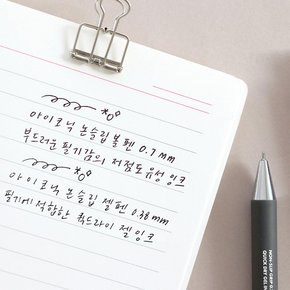 아이코닉 논슬립 볼펜 0.7mm
부드러운 필기감의 저점도 유성 잉크
아이코닉 논슬립 젤펜 0.38mm
필기에 적합한 퀵드라이 젤 잉크
NON-SLIP GRIP
QUICK DRY GEL IN